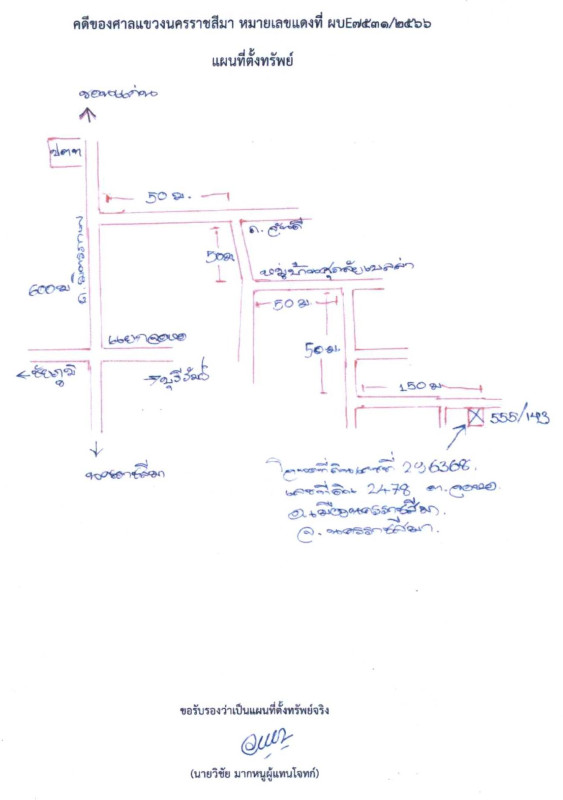 คดีของศาลแขวงนครราชสีมา หมายเลขแดงที่ ผบE๗๕๓๑/๒๕๖๖
แผนที่ตั้งทรัพย์
ขอนแก่น
ปตท
50 ม.
ถ. มิตรภาพ
600 ม
50ม
50 ม
แยกจอหอ
50 ม.
ชัยภูมิ
บุรีรัมย์
150 ม
555/143
นครราชสีมา
โฉนดที่ดินเลขที่ 296368.
เลขที่ดิน 2478 ต.จอหอ
อ.เมืองนครราชสีมา.
จ. นครราชสีมา.
ขอรับรองว่าเป็นแผนที่ตั้งทรัพย์จริง
(นายวิชัย มากหนูผู้แทนโจทก์)